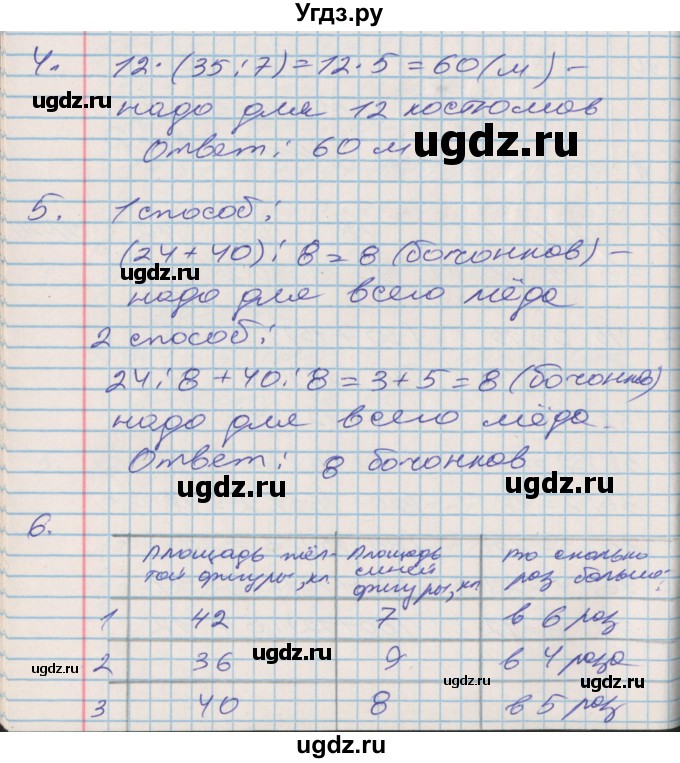 Угдз.ру
4. 12·(35:7)=12·5=60(м)-
надо для 12 костюмов
Ответ: 60 м
5. 1 способ:
(24+40):8=8 (бочонков)-
надо для всего мёда
2 способ:
24:8+40:8=3+5=8 (бочонков)
надо для всего мёда.
Ответ: 8 бочонков
6.
Площадь жёл- Площадь Во сколько
той фигуры, кл синей раз больше?
фигуры, кл
1 42 7 в 6 раз
2 36 9 в 4 раза
3 40 8 в 5 раз
ugdz.ru
ugdz.ru
ugdz.ru
ugdz.ru
ugdz.ru
ugdz.ru
ugdz.ru
ugdz.ru
ugdz.ru
ugdz.ru
ugdz.ru